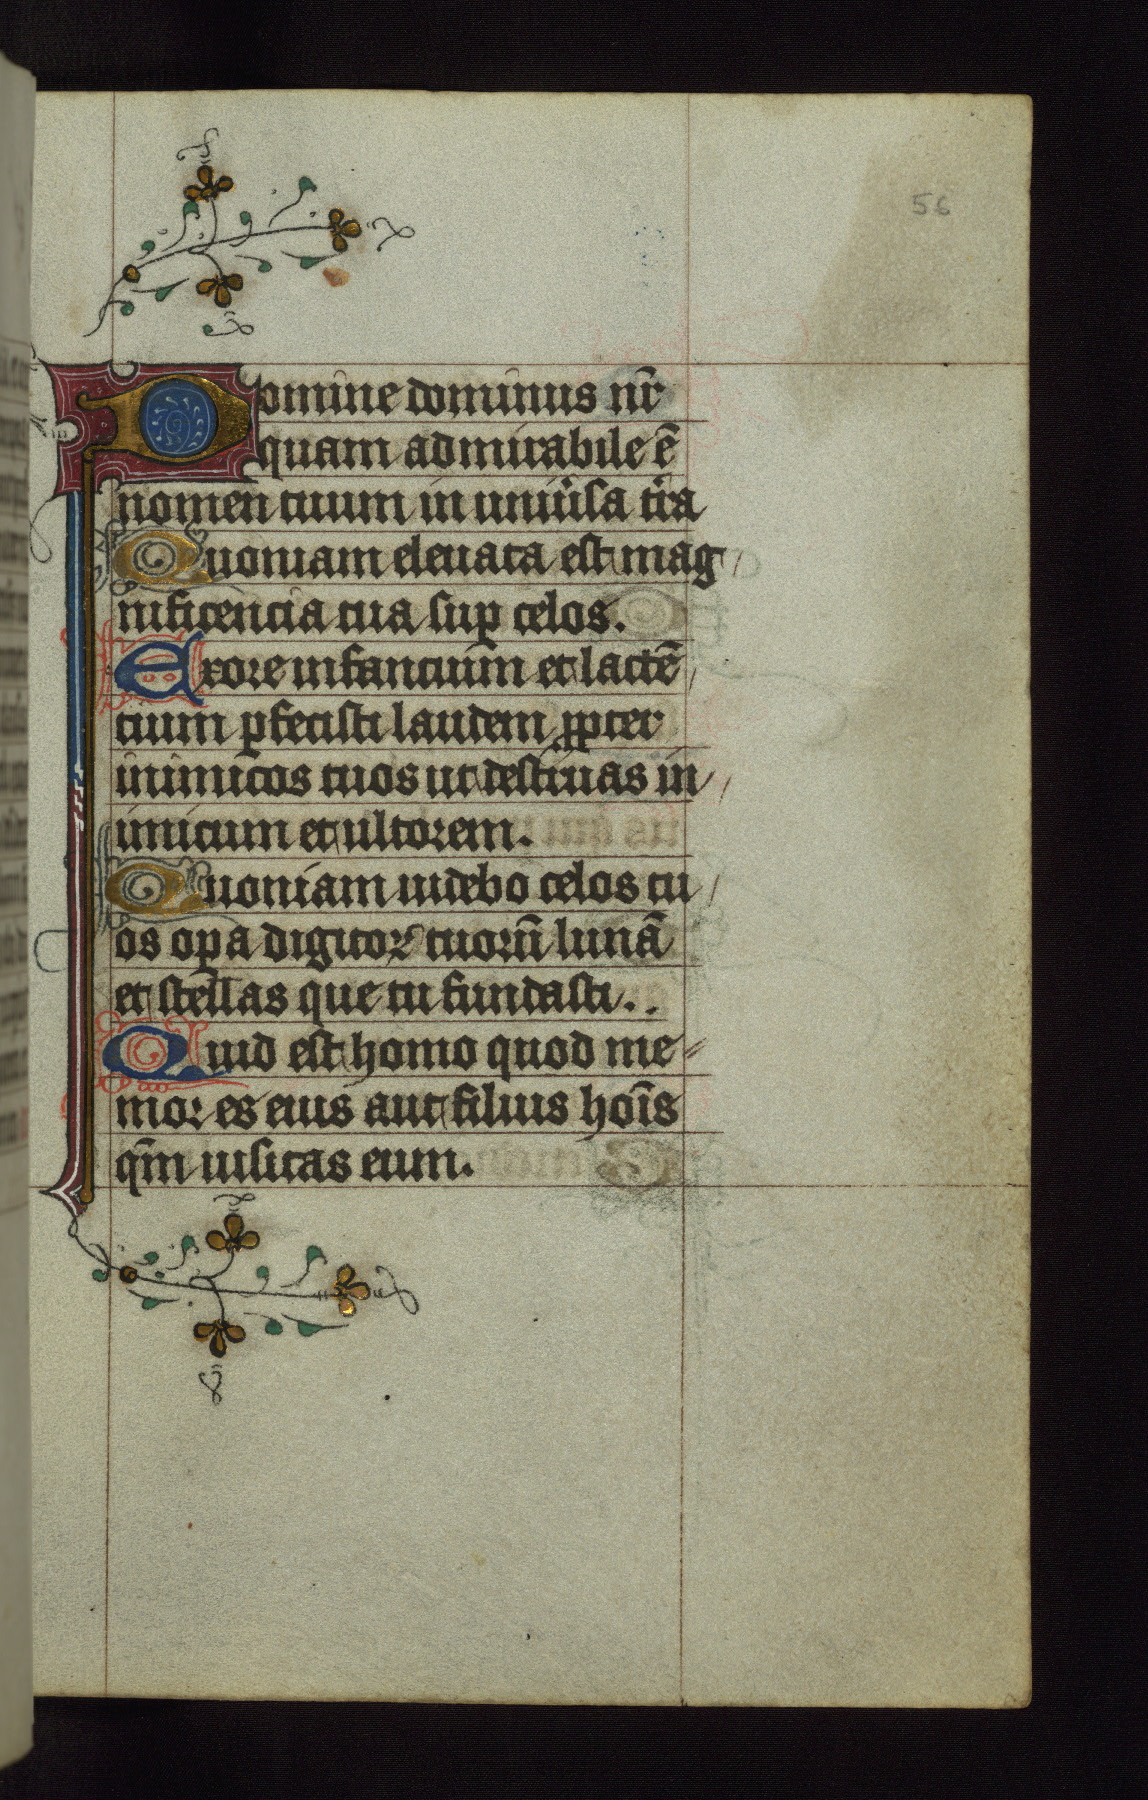 56
Domine dominus nr̄
quam admirabile ē
nomen tuum in uniũsa t̃ra
Quoniam eleuata est mag
nificencia tua sup celos.
Exore infancium et lactē
cium pfecisti laudem ꝓpter
inimicos tuos ut destruas in
imicum et ultorem.
Quoniam uidebo celos tu
os opa digitoꝝ tuorū lunā
et stellas que tu fundasti.
Quid est homo quod me
mor es eius aut filius hoīs
qm̄ uisitas eum.